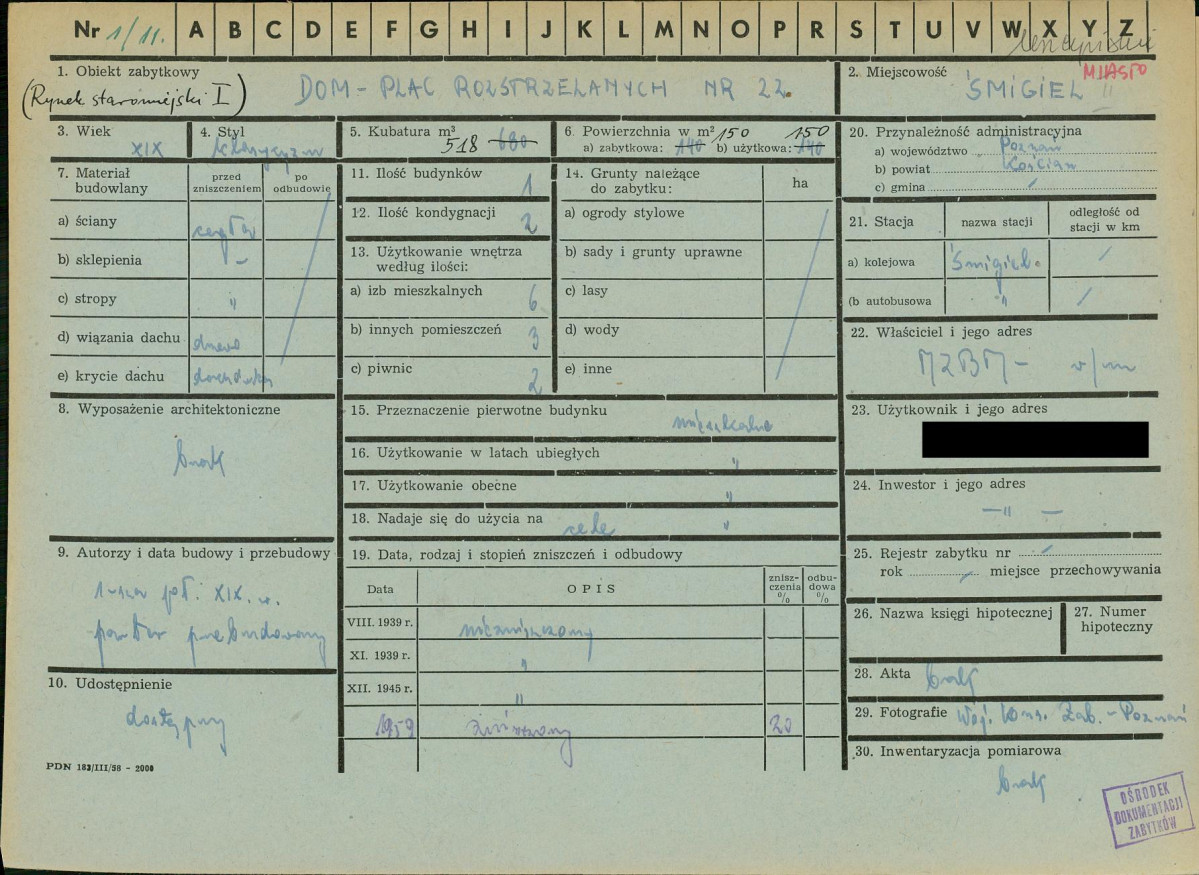 Nr 1/11. A B C D E F G H I J K L M N O P R S T U V W X Y Z
1. Obiekt zabytkowy
(Rynek staromiejski I)
DOM - PLAC ROZSTRZELANYCH NR 22.
2. Miejscowość MIASTO
ŚMIGIEL
3. Wiek
XIX
4. Styl
klasycyzm
5. Kubatura m³
518 680
6. Powierzchnia w m² 150 150
a) zabytkowa: 140 b) użytkowa: 140
7. Materiał budowlany
przed zniszczeniem
po odbudowie
a) ściany cegła
b) sklepienia -
c) stropy "
d) wiązania dachu drewno
e) krycie dachu dachówka
8. Wyposażenie architektoniczne
brak
9. Autorzy i data budowy i przebudowy
1-sza poł. XIX. w.
parter przebudowany
10. Udostępnienie
dostępny
PDN 183/III/58 - 2000
11. Ilość budynków 1
12. Ilość kondygnacji 2
13. Użytkowanie wnętrza według ilości:
a) izb mieszkalnych 6
b) innych pomieszczeń 3
c) piwnic 2
14. Grunty należące do zabytku:
ha
a) ogrody stylowe
b) sady i grunty uprawne
c) lasy
d) wody
e) inne
15. Przeznaczenie pierwotne budynku mieszkalne
16. Użytkowanie w latach ubiegłych "
17. Użytkowanie obecne "
18. Nadaje się do użycia na cele "
19. Data, rodzaj i stopień zniszczeń i odbudowy
Data OPIS zniszczenia % odbudowa %
VIII. 1939 r. niezniszczony
XI. 1939 r. "
XII. 1945 r. "
1959 zniszczony 20
20. Przynależność administracyjna
a) województwo Poznań
b) powiat Kościan
c) gmina /
21. Stacja nazwa stacji odległość od stacji w km
a) kolejowa Śmigiel. /
(b autobusowa " /
22. Właściciel i jego adres
MZBM - w/m
23. Użytkownik i jego adres
24. Inwestor i jego adres
- " -
25. Rejestr zabytku nr /
rok / miejsce przechowywania
26. Nazwa księgi hipotecznej
27. Numer hipoteczny
28. Akta brak
29. Fotografie Woj. Kons. Zab. - Poznań
30. Inwentaryzacja pomiarowa
brak
OŚRODEK
DOKUMENTACJI
ZABYTKÓW